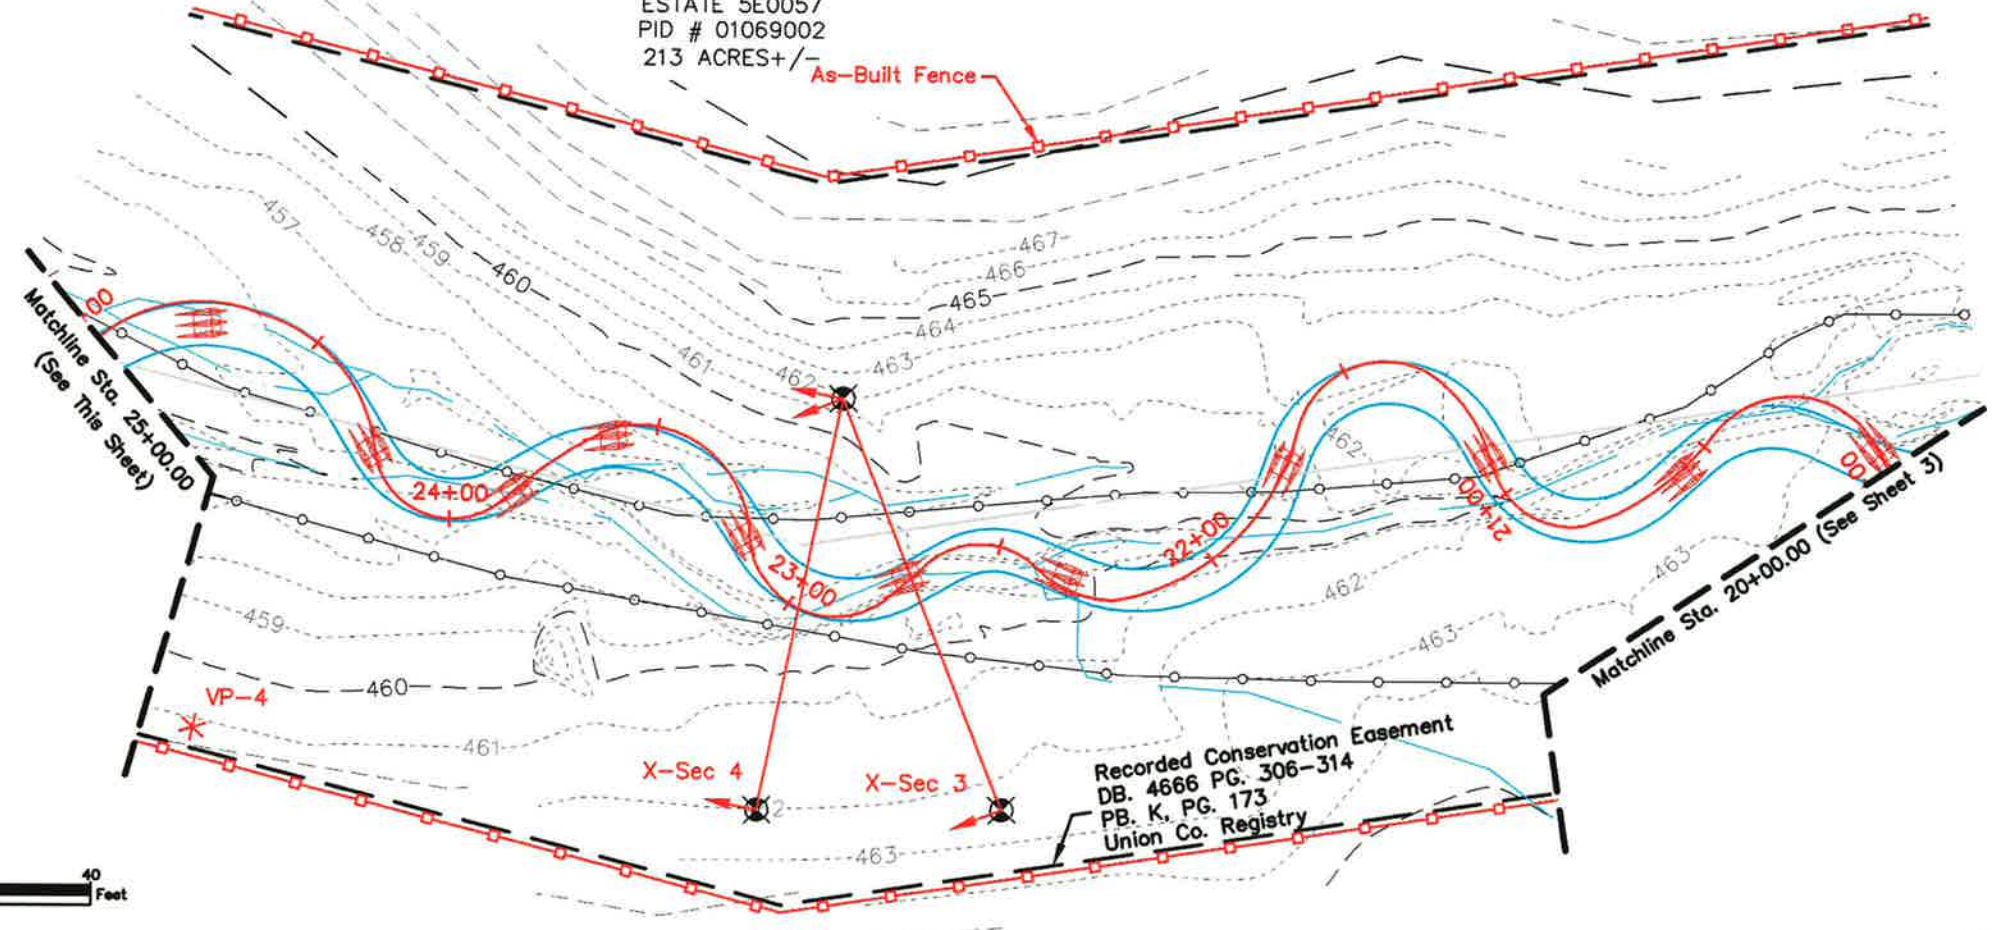 ESTATE 5E0057
PID # 01069002
213 ACRES+/-
As-Built Fence
467
466
465
464
463
462
461
460
459
458
457
Matchline Sta. 25+00.00
(See This Sheet)
00
24+00
23+00
22+00
21+00
00
462
462
463
463
Matchline Sta. 20+00.00 (See Sheet 3)
459
460
461
VP-4
X-Sec 4
X-Sec 3
2
463
Recorded Conservation Easement
DB. 4666 PG. 306-314
PB. K, PG. 173
Union Co. Registry
40
Feet